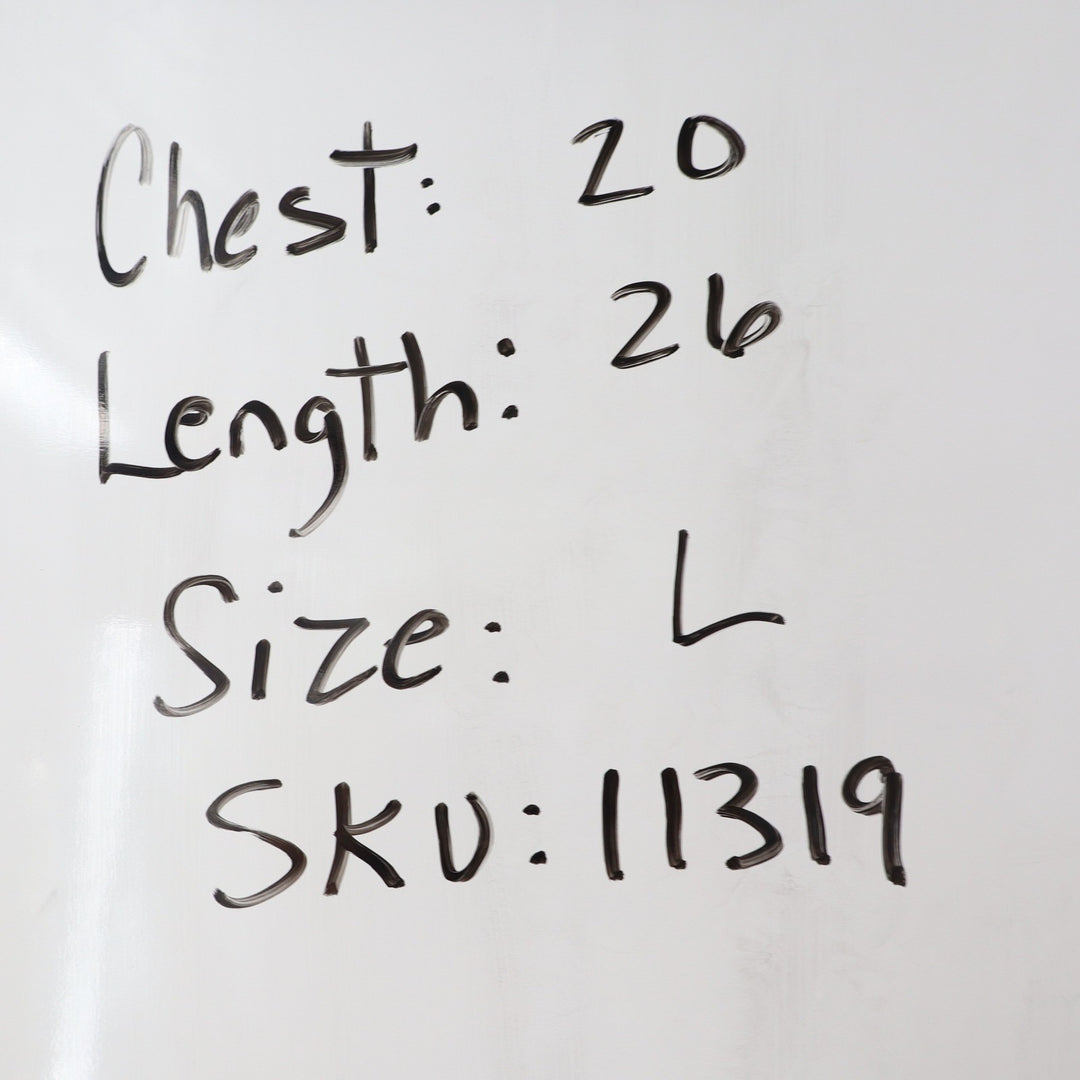 Chest: 20
Length: 26
Size: L
SKU: 11319